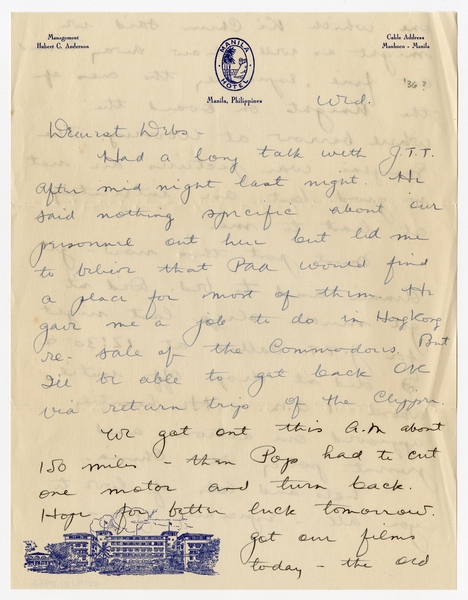 Management
Hubert C. Anderson
MANILA
HOTEL
Manila, Philippines
Cable Address
Manhoco - Manila
'36?
Wed.
Dearest Debs
Had a long talk with J.T.T.
after mid night last night. He
said nothing specific about our
personnel out here but led me
to believe that PAA would find
a place for most of them. He
gave me a job to do in HongKong
re- sale of the Commodores. But
I'll be able to get back OK
via return trips of the Clipper.
We got out this A.M about
150 miles - then Pop had to cut
one motor and turn back.
Hope for better luck tomorrow.
got our films
today - the old